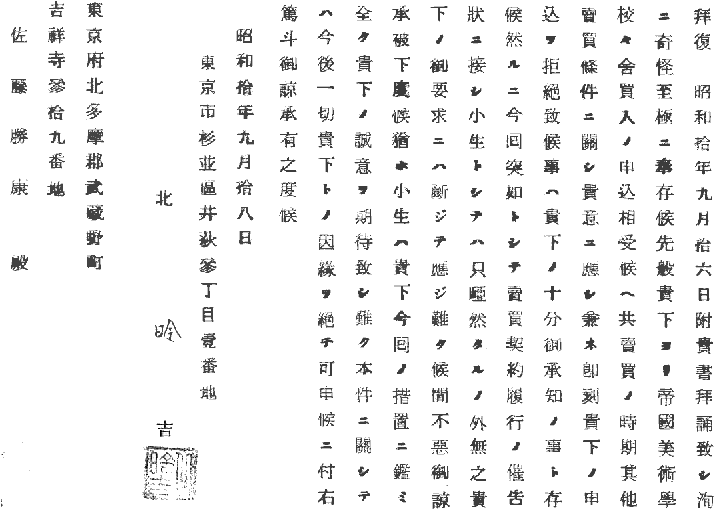 拜復　昭和拾年九月拾六日附貴書拜誦致シ洵
ニ奇怪至極ニ奉存候先般貴下ヨリ帝國美術學
校々舍買入ノ申込相受候ヘ共賣買ノ時期其他
賣買條件ニ關シ貴意ニ應シ兼ネ卽刻貴下ノ申
込ヲ拒絕致候事ハ貴下ノ十分御承知ノ事ト存
候然ルニ今囘突如トシテ賣買契約履行ノ催告
狀ニ接シ小生トシテハ只啞然タルノ外無之貴
下ノ御要求ニハ斷ジテ應ジ難ク候間不惡御諒
承被下度候猶ホ小生ハ貴下今囘ノ措置ニ鑑ミ
全ク貴下ノ誠意ヲ期待致シ難ク本件ニ關シテ
ハ今後一切貴下トノ因緣ヲ絕チ可申候ニ付右
篤斗御諒承有之度候
昭和拾年九月拾八日
東京市杉並區井荻參丁目壹番地
北　昤　吉
東京府北多摩郡武藏野町
吉祥寺參拾九番地
佐藤勝康殿